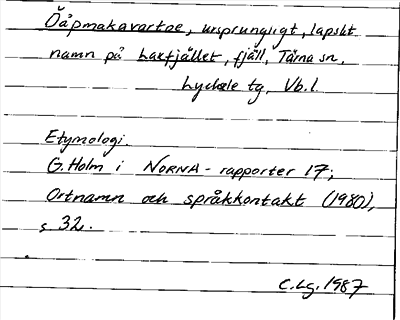 Ööpmakavartoe, ursprungligt, lapskt
namn på Laxfjället, fjäll, Tärna sn,
Lycksele tg, Vb.l.
Etymologi.
G. Holm i NORNA-rapporter 17;
Ortnamn och språkkontakt (1980),
s 32.
C.Lg. 1987